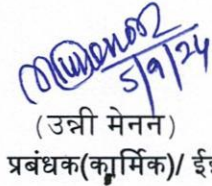 5/9/24
(उन्नी मेनन)
प्रबंधक(कार्मिक)/